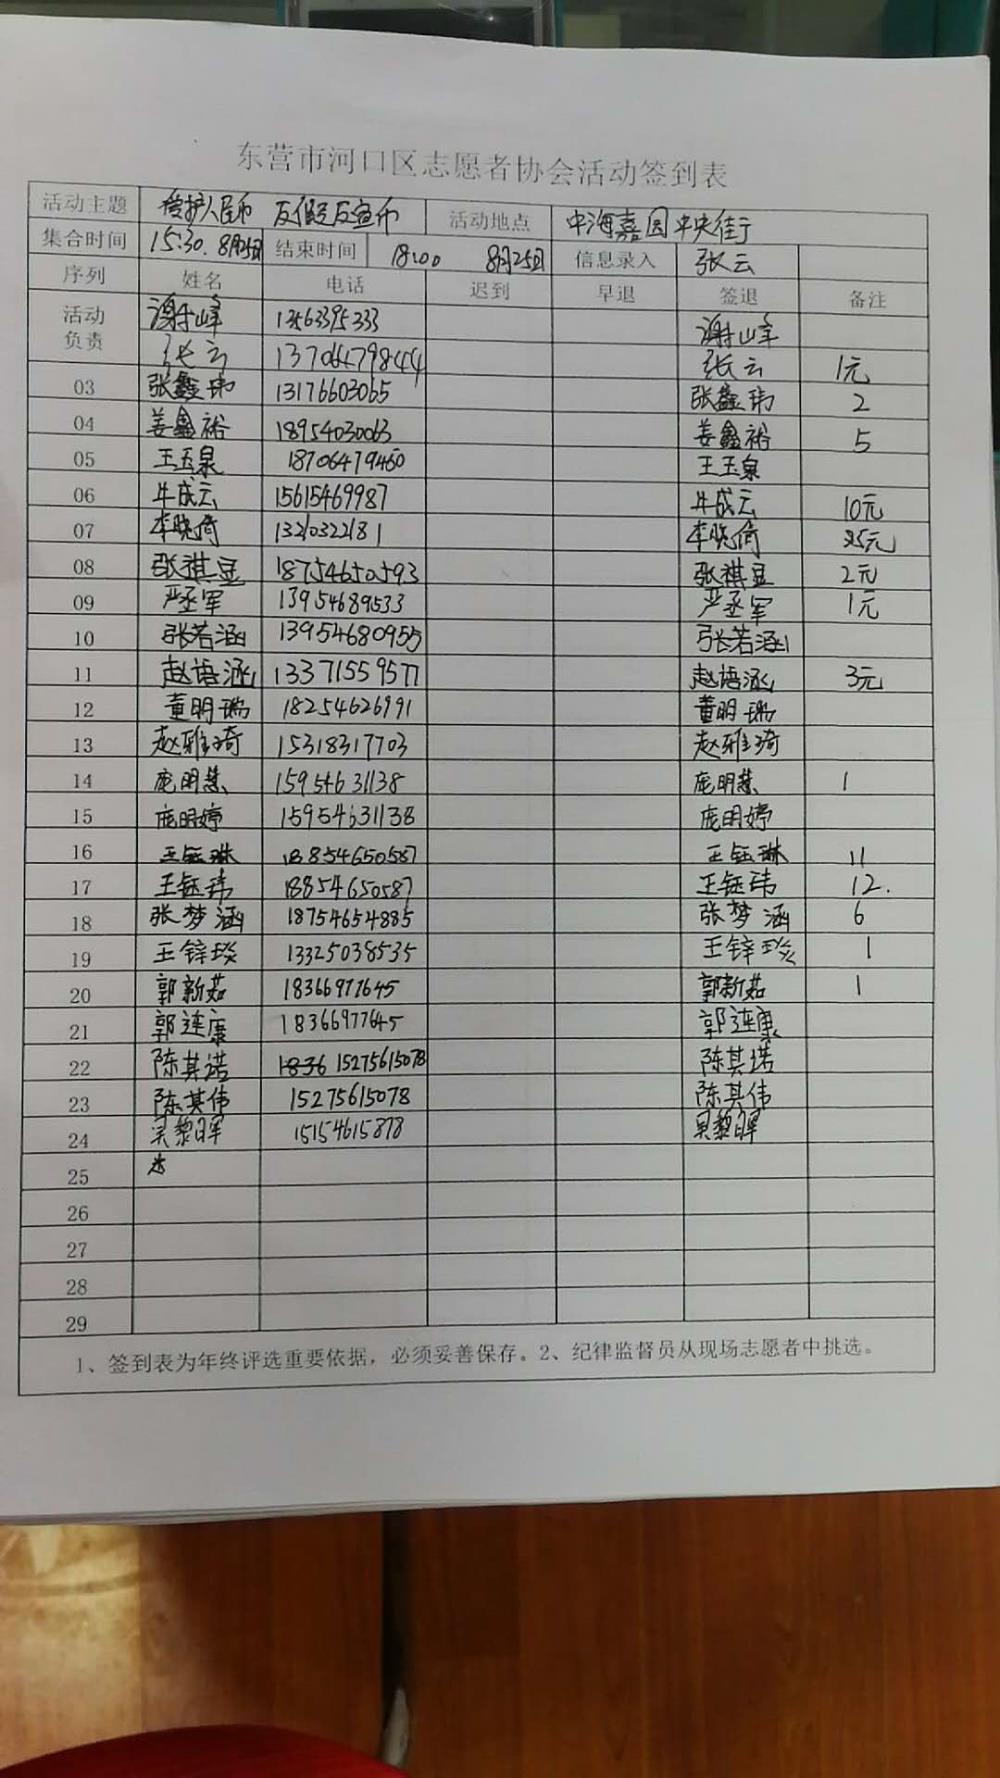 东营市河口区志愿者协会活动签到表
活动主题 爱护人民币 反假反宣币 活动地点 中海嘉园中央街
集合时间 15:30. 8月25日 结束时间 18:00 8月25日 信息录入 张云
序列 姓名 电话 迟到 早退 签退 备注
活动负责 谢峰 13563395333 谢峰
张云 13706479844 张云 1元
03 张鑫玮 13176603065 张鑫玮 2
04 姜鑫裕 18954030063 姜鑫裕 5
05 王玉泉 18706479460 王玉泉
06 牛成云 15615469987 牛成云 10元
07 李晓倚 13210322181 李晓倚 元
08 张祺显 18754650593 张祺显 2元
09 严丞军 13954689533 严丞军 1元
10 张若涵 13954680955 张若涵
11 赵语涵 13371559577 赵语涵 3元
12 董明瑞 18254626991 董明瑞
13 赵雅琦 15318317703 赵雅琦
14 庞明慧 15954631138 庞明慧 1
15 庞明婷 15954631138 庞明婷
16 王钰琳 18854650587 王钰琳 11
17 王钰玮 18854650587 王钰玮 12.
18 张梦涵 18754654885 张梦涵 6
19 王锌琰 13325038535 王锌琰 1
20 郭新茹 18366977645 郭新茹 1
21 郭连康 18366977645 郭连康
22 陈其诺 1836 15275615078 陈其诺
23 陈其伟 15275615078 陈其伟
24 吴黎晖 15154615878 吴黎晖
25
26
27
28
29
1、签到表为年终评选重要依据，必须妥善保存。2、纪律监督员从现场志愿者中挑选。